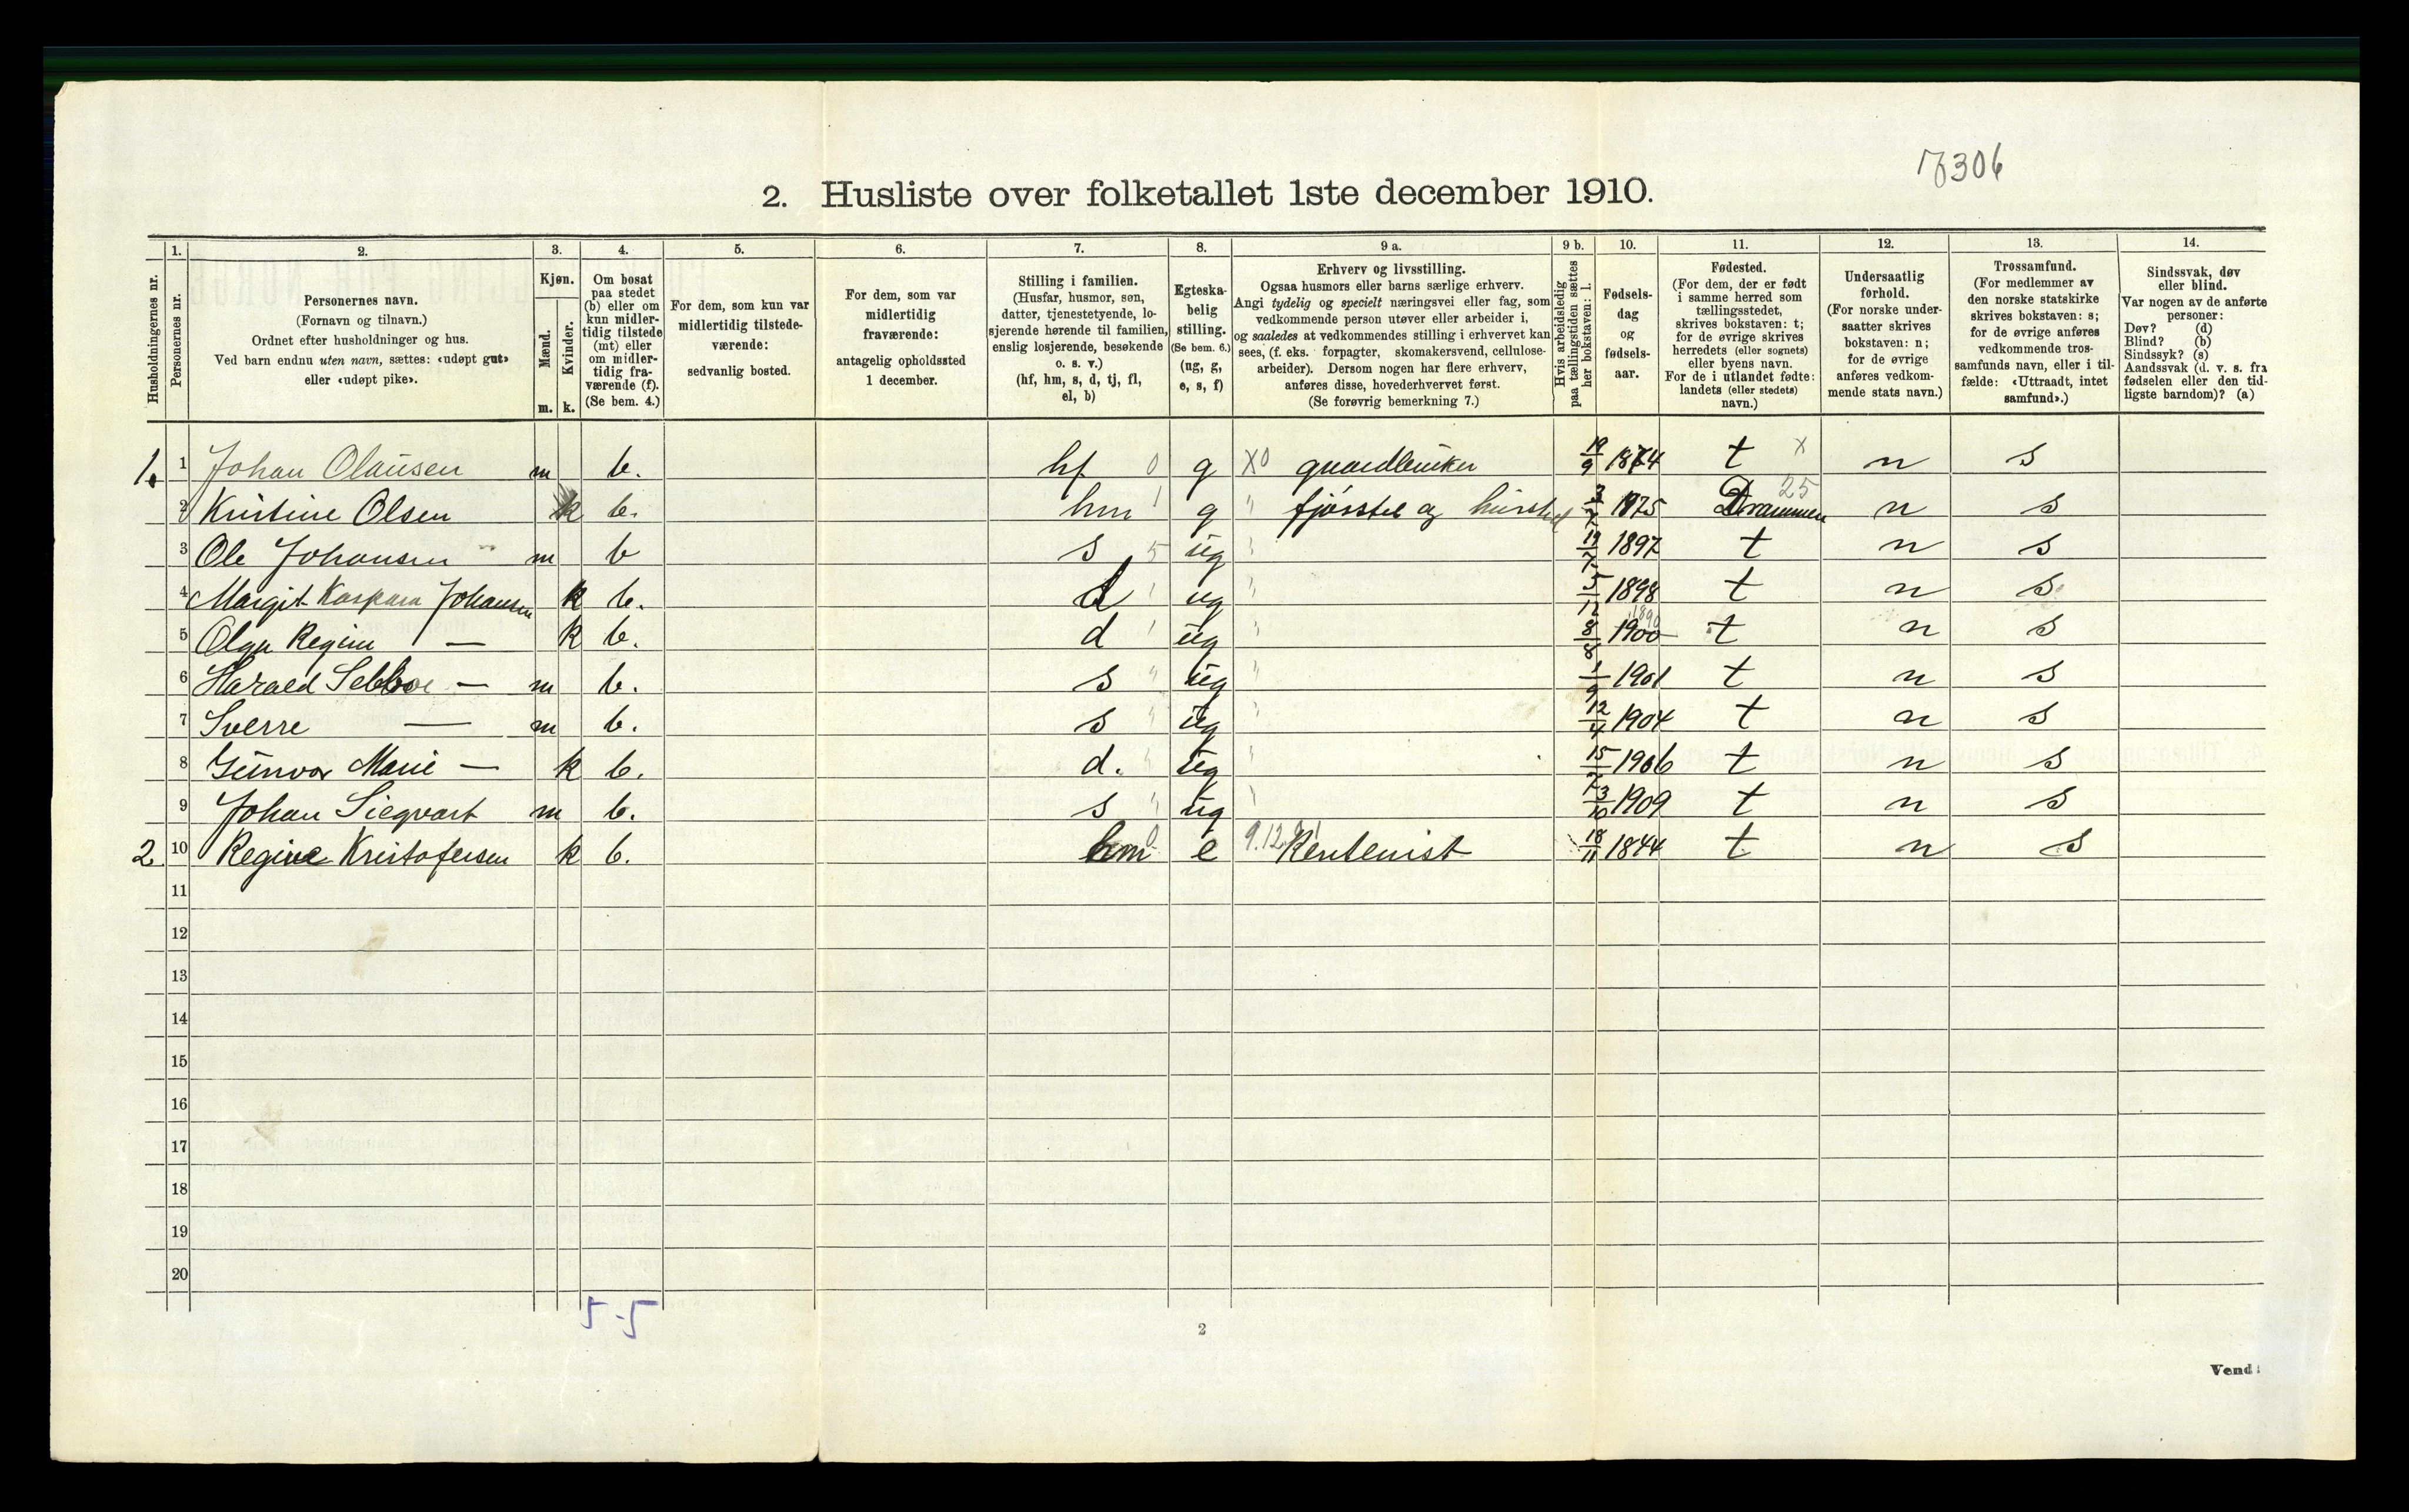 7306
2. Husliste over folketallet 1ste december 1910.
Husholdningernes nr.
1. Personernes nr.
2. Personernes navn. (Fornavn og tilnavn.) Ordnet efter husholdninger og hus. Ved barn endnu uten navn, sættes: «udøpt gut» eller «udøpt pike».
3. Kjøn. Mænd. m. Kvinder. k.
4. Om bosat paa stedet (b) eller om kun midlertidig tilstede (mt) eller om midlertidig fraværende (f). (Se bem. 4.)
5. For dem, som kun var midlertidig tilstedeværende: sedvanlig bosted.
6. For dem, som var midlertidig fraværende: antagelig opholdssted 1 december.
7. Stilling i familien. (Husfar, husmor, søn, datter, tjenestetyende, losjerende hørende til familien, enslig losjerende, besøkende o. s. v.) (hf, hm, s, d, tj, fl, el, b)
8. Egteskabelig stilling. (Se bem. 6.) (ug, g, e, s, f)
9 a. Erhverv og livsstilling. Ogsaa husmors eller barns særlige erhverv. Angi tydelig og specielt næringsvei eller fag, som vedkommende person utøver eller arbeider i, og saaledes at vedkommendes stilling i erhvervet kan sees, (f. eks. forpagter, skomakersvend, cellulosearbeider). Dersom nogen har flere erhverv, anføres disse, hovederhvervet først. (Se forøvrig bemerkning 7.)
9 b. Hvis arbeidsledig paa tællingstiden sættes her bokstaven: l.
10. Fødselsdag og fødselsaar.
11. Fødested. (For dem, der er født i samme herred som tællingsstedet, skrives bokstaven: t; for de øvrige skrives herredets (eller sognets) eller byens navn. For de i utlandet fødte: landets (eller stedets) navn.)
12. Undersaatlig forhold. (For norske undersaatter skrives bokstaven: n; for de øvrige anføres vedkommende stats navn.)
13. Trossamfund. (For medlemmer av den norske statskirke skrives bokstaven: s; for de øvrige anføres vedkommende trossamfunds navn, eller i tilfælde: «Uttraadt, intet samfund».)
14. Sindssvak, døv eller blind. Var nogen av de anførte personer: Døv? (d) Blind? (b) Sindssyk? (s) Aandssvak (d. v. s. fra fødselen eller den tidligste barndom)? (a)
1. 1 Johan Olausen m b. hf 0 g X0 gaardbruker 19/9 1874 t x n s
2 Kristine Olsen k b. hm 1 g " fjøsstel og husstel 3/7 1875 Drammen 25 n s
3 Ole Johansen m b s 5 ug " 19/7 1897 t n s
4 Margit Kaspara Johansen k b. d 1 ug " 5/12 1898 t n s
5 Olga Regine — k b. d 1 ug " 8/8 1900 1890 t n s
6 Harald — m b. s " ug " 1/9 1901 t n s
7 Sverre — m b. s " ug " 12/4 1904 t n s
8 Gunvor Marie — k b. d. " ug " 15/7 1906 t n s
9 Johan Siegvart m b. s " ug " 3/10 1909 t n s
2 10 Regine Kristofersen k b. hm 0 e 9.12 Rentenist 18/11 1844 t n s
11
12
13
14
15
16
17
18
19
20
5-5
2
Vend!